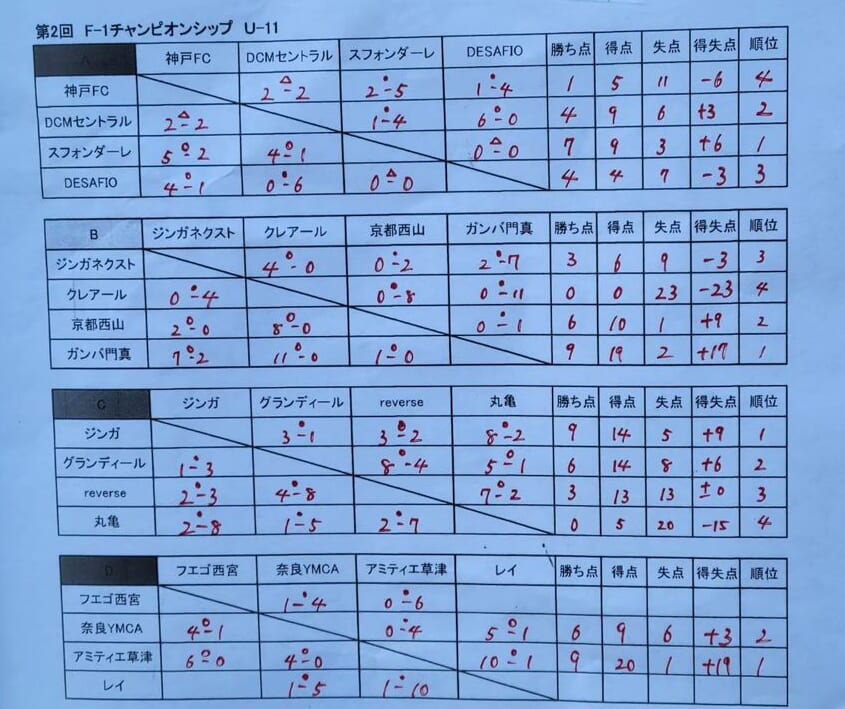 第2回 F-1チャンピオンシップ U-11
A 神戸FC DCMセントラル スフォンダーレ DESAFIO 勝ち点 得点 失点 得失点 順位
神戸FC 2△2 2●5 1●4 1 5 11 -6 4
DCMセントラル 2△2 1●4 6○0 4 9 6 +3 2
スフォンダーレ 5○2 4○1 0△0 7 9 3 +6 1
DESAFIO 4○1 0●6 0△0 4 4 7 -3 3
B ジンガネクスト クレアール 京都西山 ガンバ門真 勝ち点 得点 失点 得失点 順位
ジンガネクスト 4○0 0●2 2●7 3 6 9 -3 3
クレアール 0●4 0●8 0●11 0 0 23 -23 4
京都西山 2○0 8○0 0●1 6 10 1 +9 2
ガンバ門真 7○2 11○0 1○0 9 19 2 +17 1
C ジンガ グランディール reverse 丸亀 勝ち点 得点 失点 得失点 順位
ジンガ 3○1 3○2 8○2 9 14 5 +9 1
グランディール 1●3 8○4 5○1 6 14 8 +6 2
reverse 2●3 4●8 7○2 3 13 13 ±0 3
丸亀 2●8 1●5 2●7 0 5 20 -15 4
D フエゴ西宮 奈良YMCA アミティエ草津 レイ 勝ち点 得点 失点 得失点 順位
フエゴ西宮 1●4 0●6
奈良YMCA 4○1 0●4 5○1 6 9 6 +3 2
アミティエ草津 6○0 4○0 10○1 9 20 1 +19 1
レイ 1●5 1●10